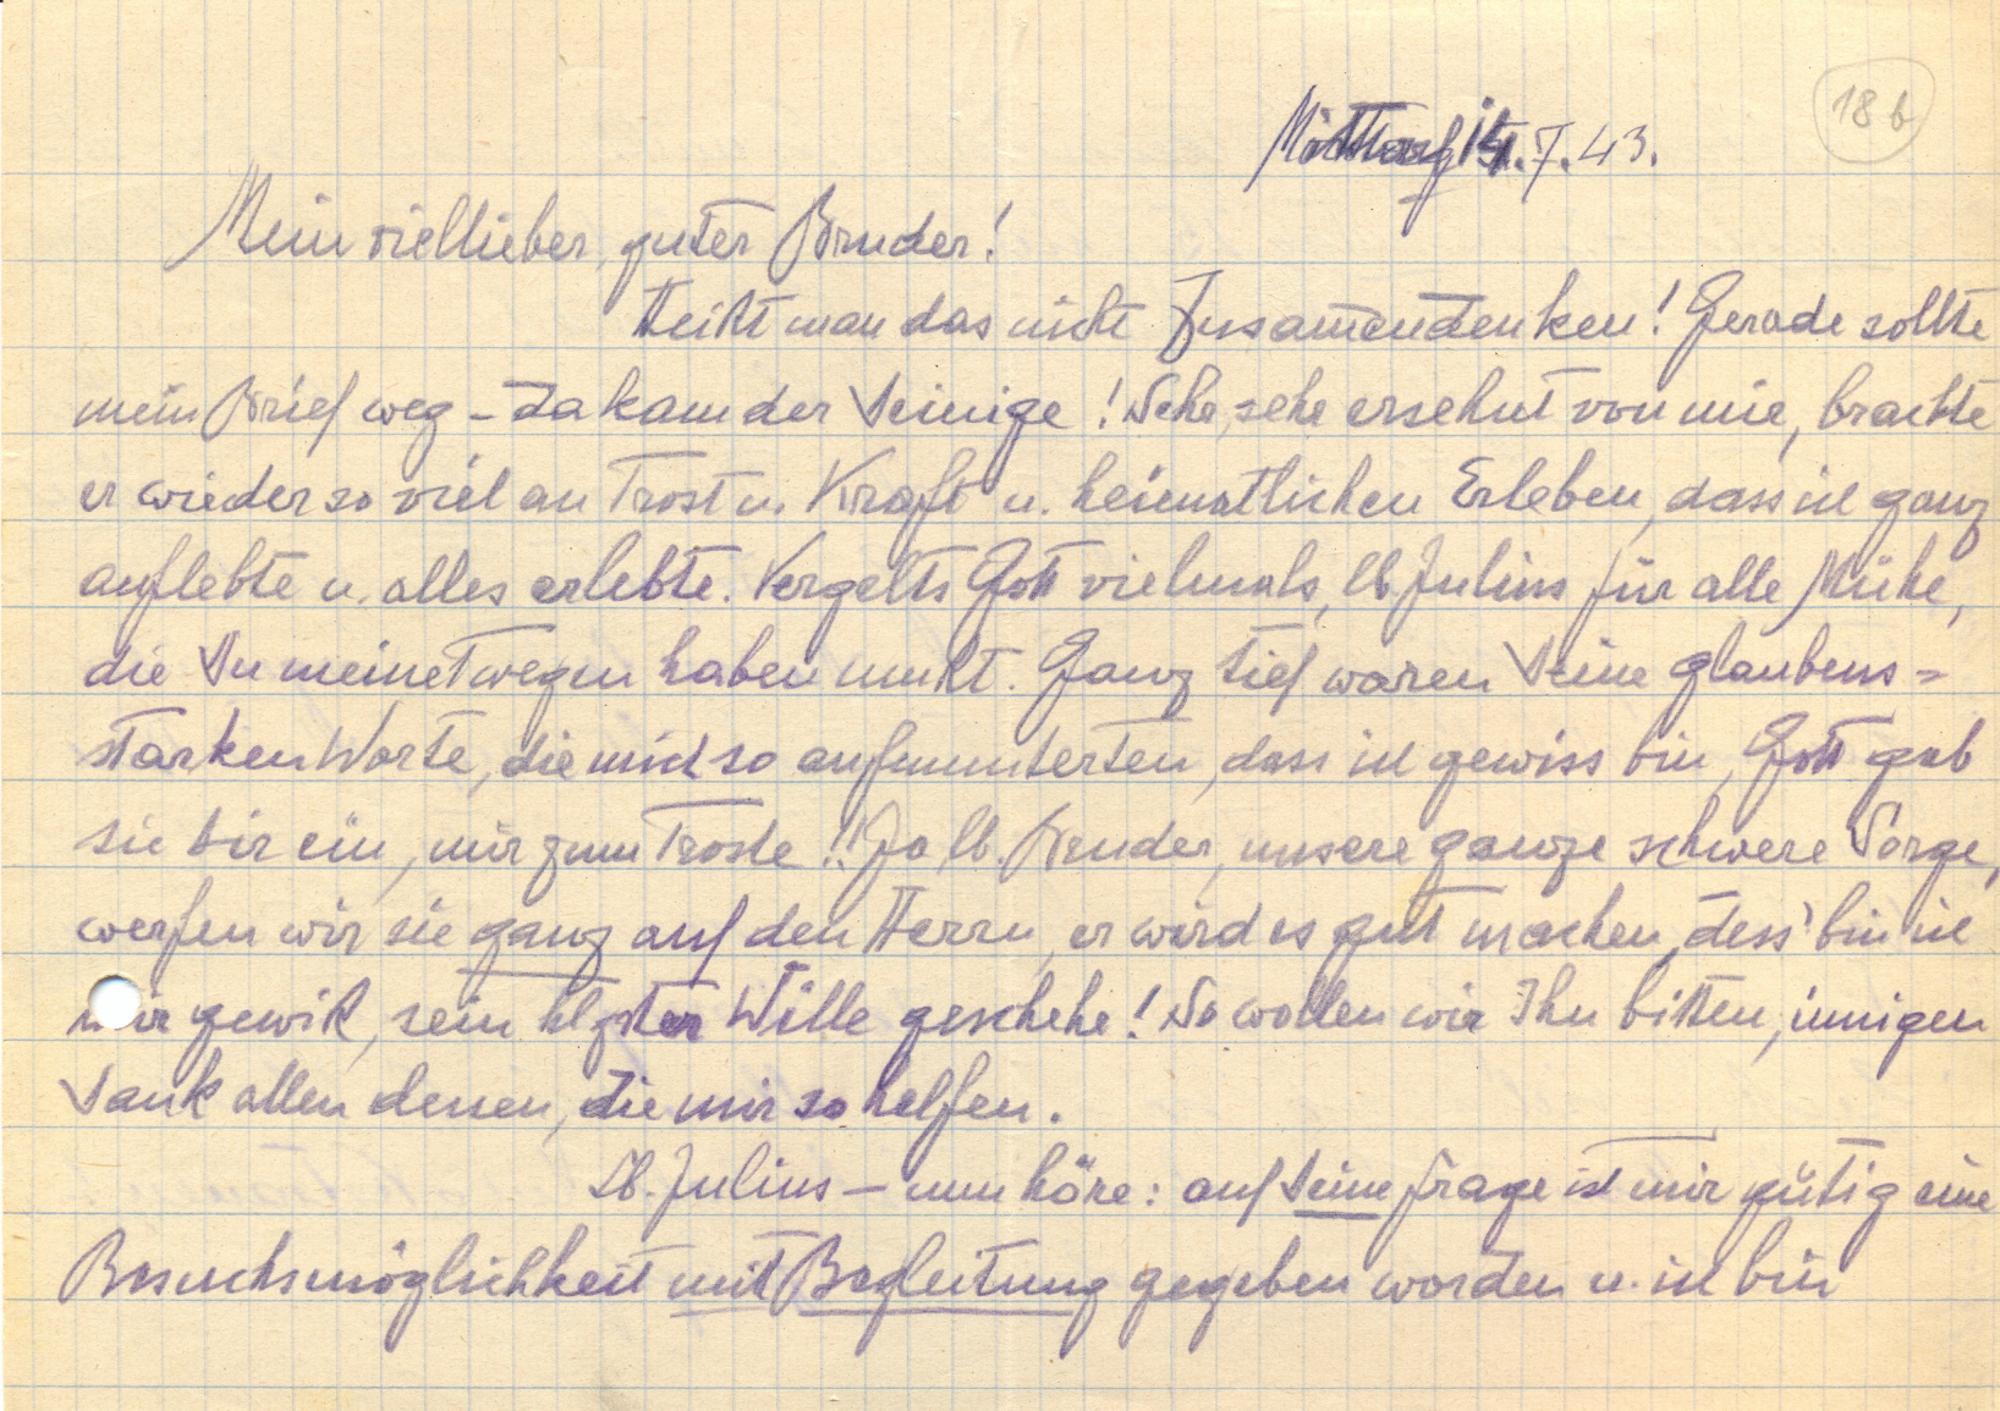 18 b
14.7.43.
Mein viellieber, guter Bruder!
Heißt man das nicht Zusam̄endenken! Gerade sollte
mein Brief weg – da kam der Deinige! Sehr, sehr ersehnt von mir, brachte
er wieder so viel an Trost u. Kraft u. heimatlichen Erleben, dass ich ganz
auflebte u. alles erlebte. Vergelts Gott vielmals, lb. Julius für alle Mühe,
die Du meinetwegen haben mußt. Ganz tief waren Deine glaubens=
starken Worte, die mich so aufmunterten, dass ich gewiss bin, Gott gab
sie dir ein, mir zum Troste!! Ja, lb. Bruder, unsere ganze schwere Sorge,
werfen wir sie ganz auf den Herrn, er wird es gut machen, dess' bin ich
mir gewiß, sein hlgster Wille geschehe! So wollen wir Ihn bitten, innigen
Dank allen denen, die mir so helfen.
Lb. Julius – nun höre: auf Deine Frage ist mir gütig eine
Besuchsmöglichkeit mit Begleitung gegeben worden u. ich bin